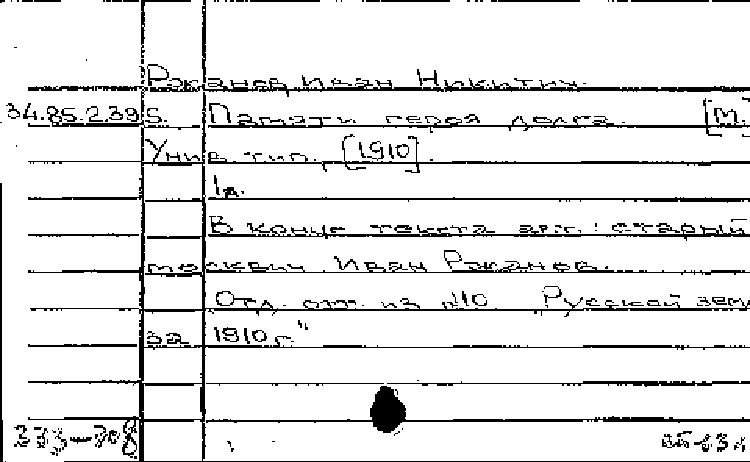 Ржанов, Иван Никитич.
34.85.2395. Памяти героя долга. [М.]
Унив. тип., [1910].
1 л.
В конце текста авт.: старый
москвич Иван Ржанов.
Отд. отт. из №10 "Русской земл
за 1910 г."
333-308